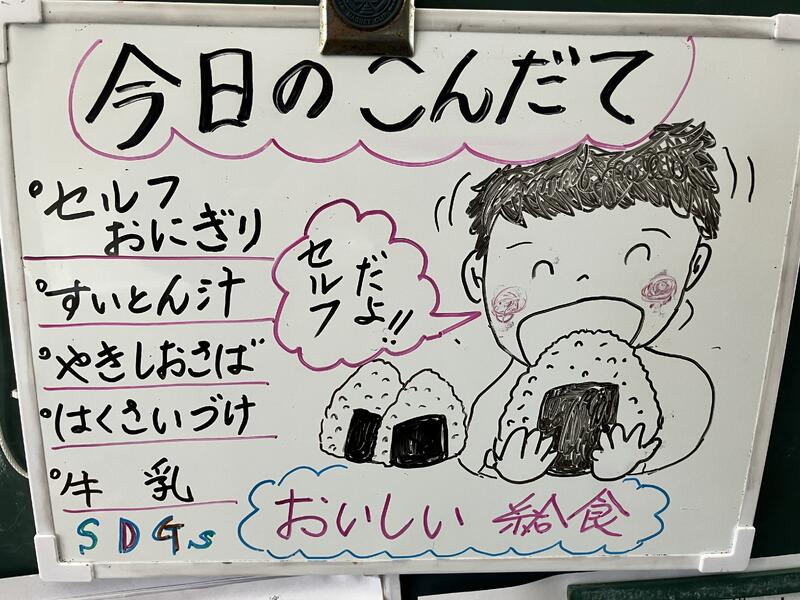 今日のこんだて
セルフ
おにぎり
すいとん汁
やきしおさば
はくさいづけ
牛乳
SDGs
セルフ
だよ!!
おいしい給食